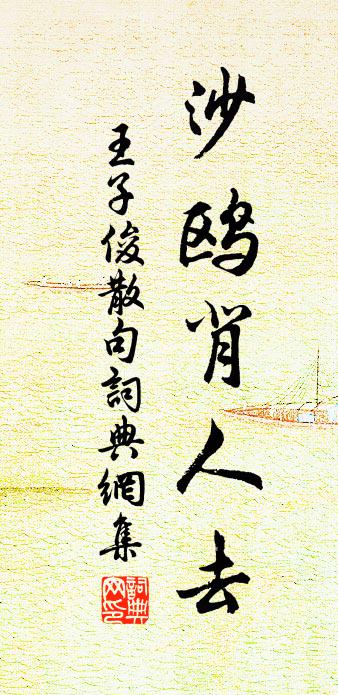 沙鸥肖人去
王子俊散句詞典網集
詞典网印